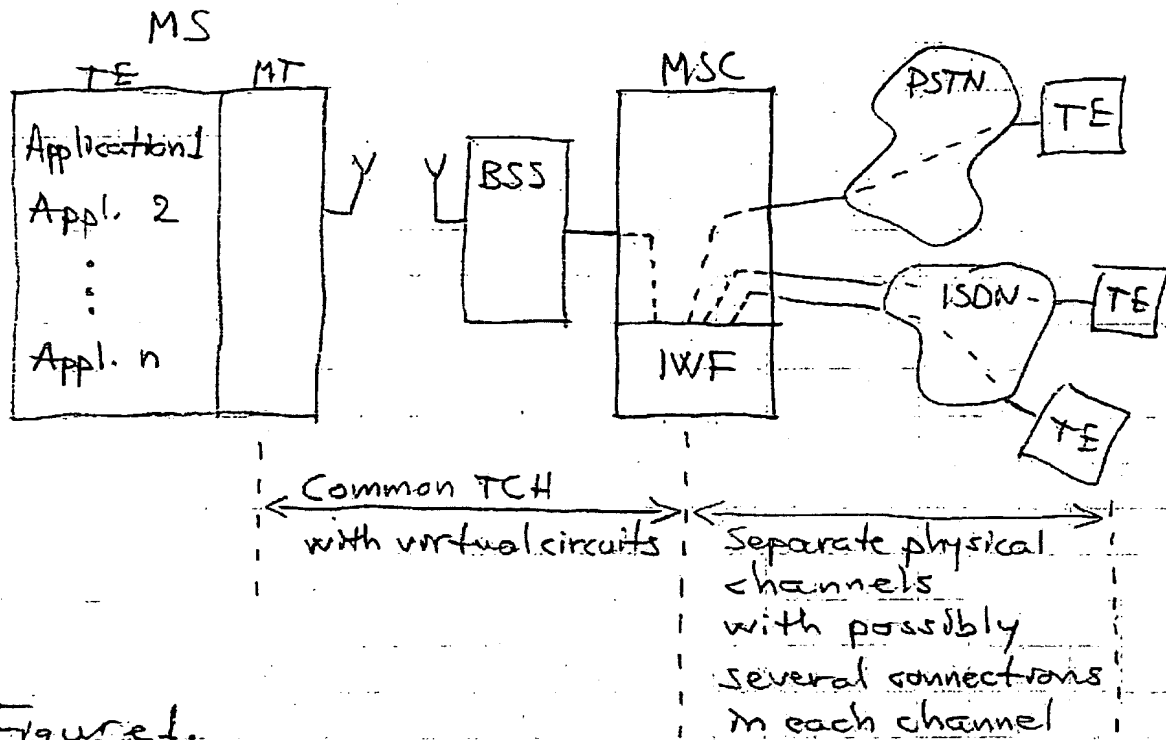 MS
TE MT
Application 1
Appl. 2
Appl. n
BSS
MSC
IWF
PSTN
TE
ISDN
TE
TE
Common TCH
with virtual circuits
Separate physical
channels
with possibly
several connections
in each channel
Figure 1.